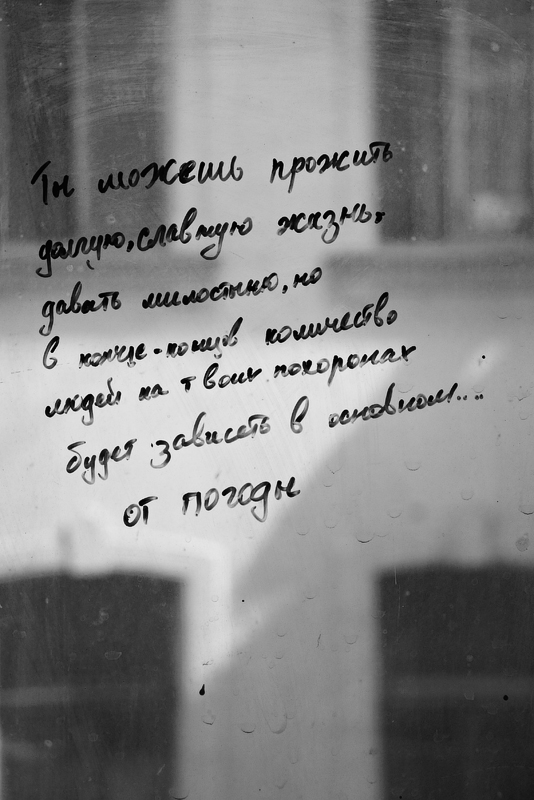 Ты можешь прожить
долгую, славную жизнь,
давать милостыню, но
в конце-концов количество
людей на твоих похоронах
будет зависеть в основном...
от погоды